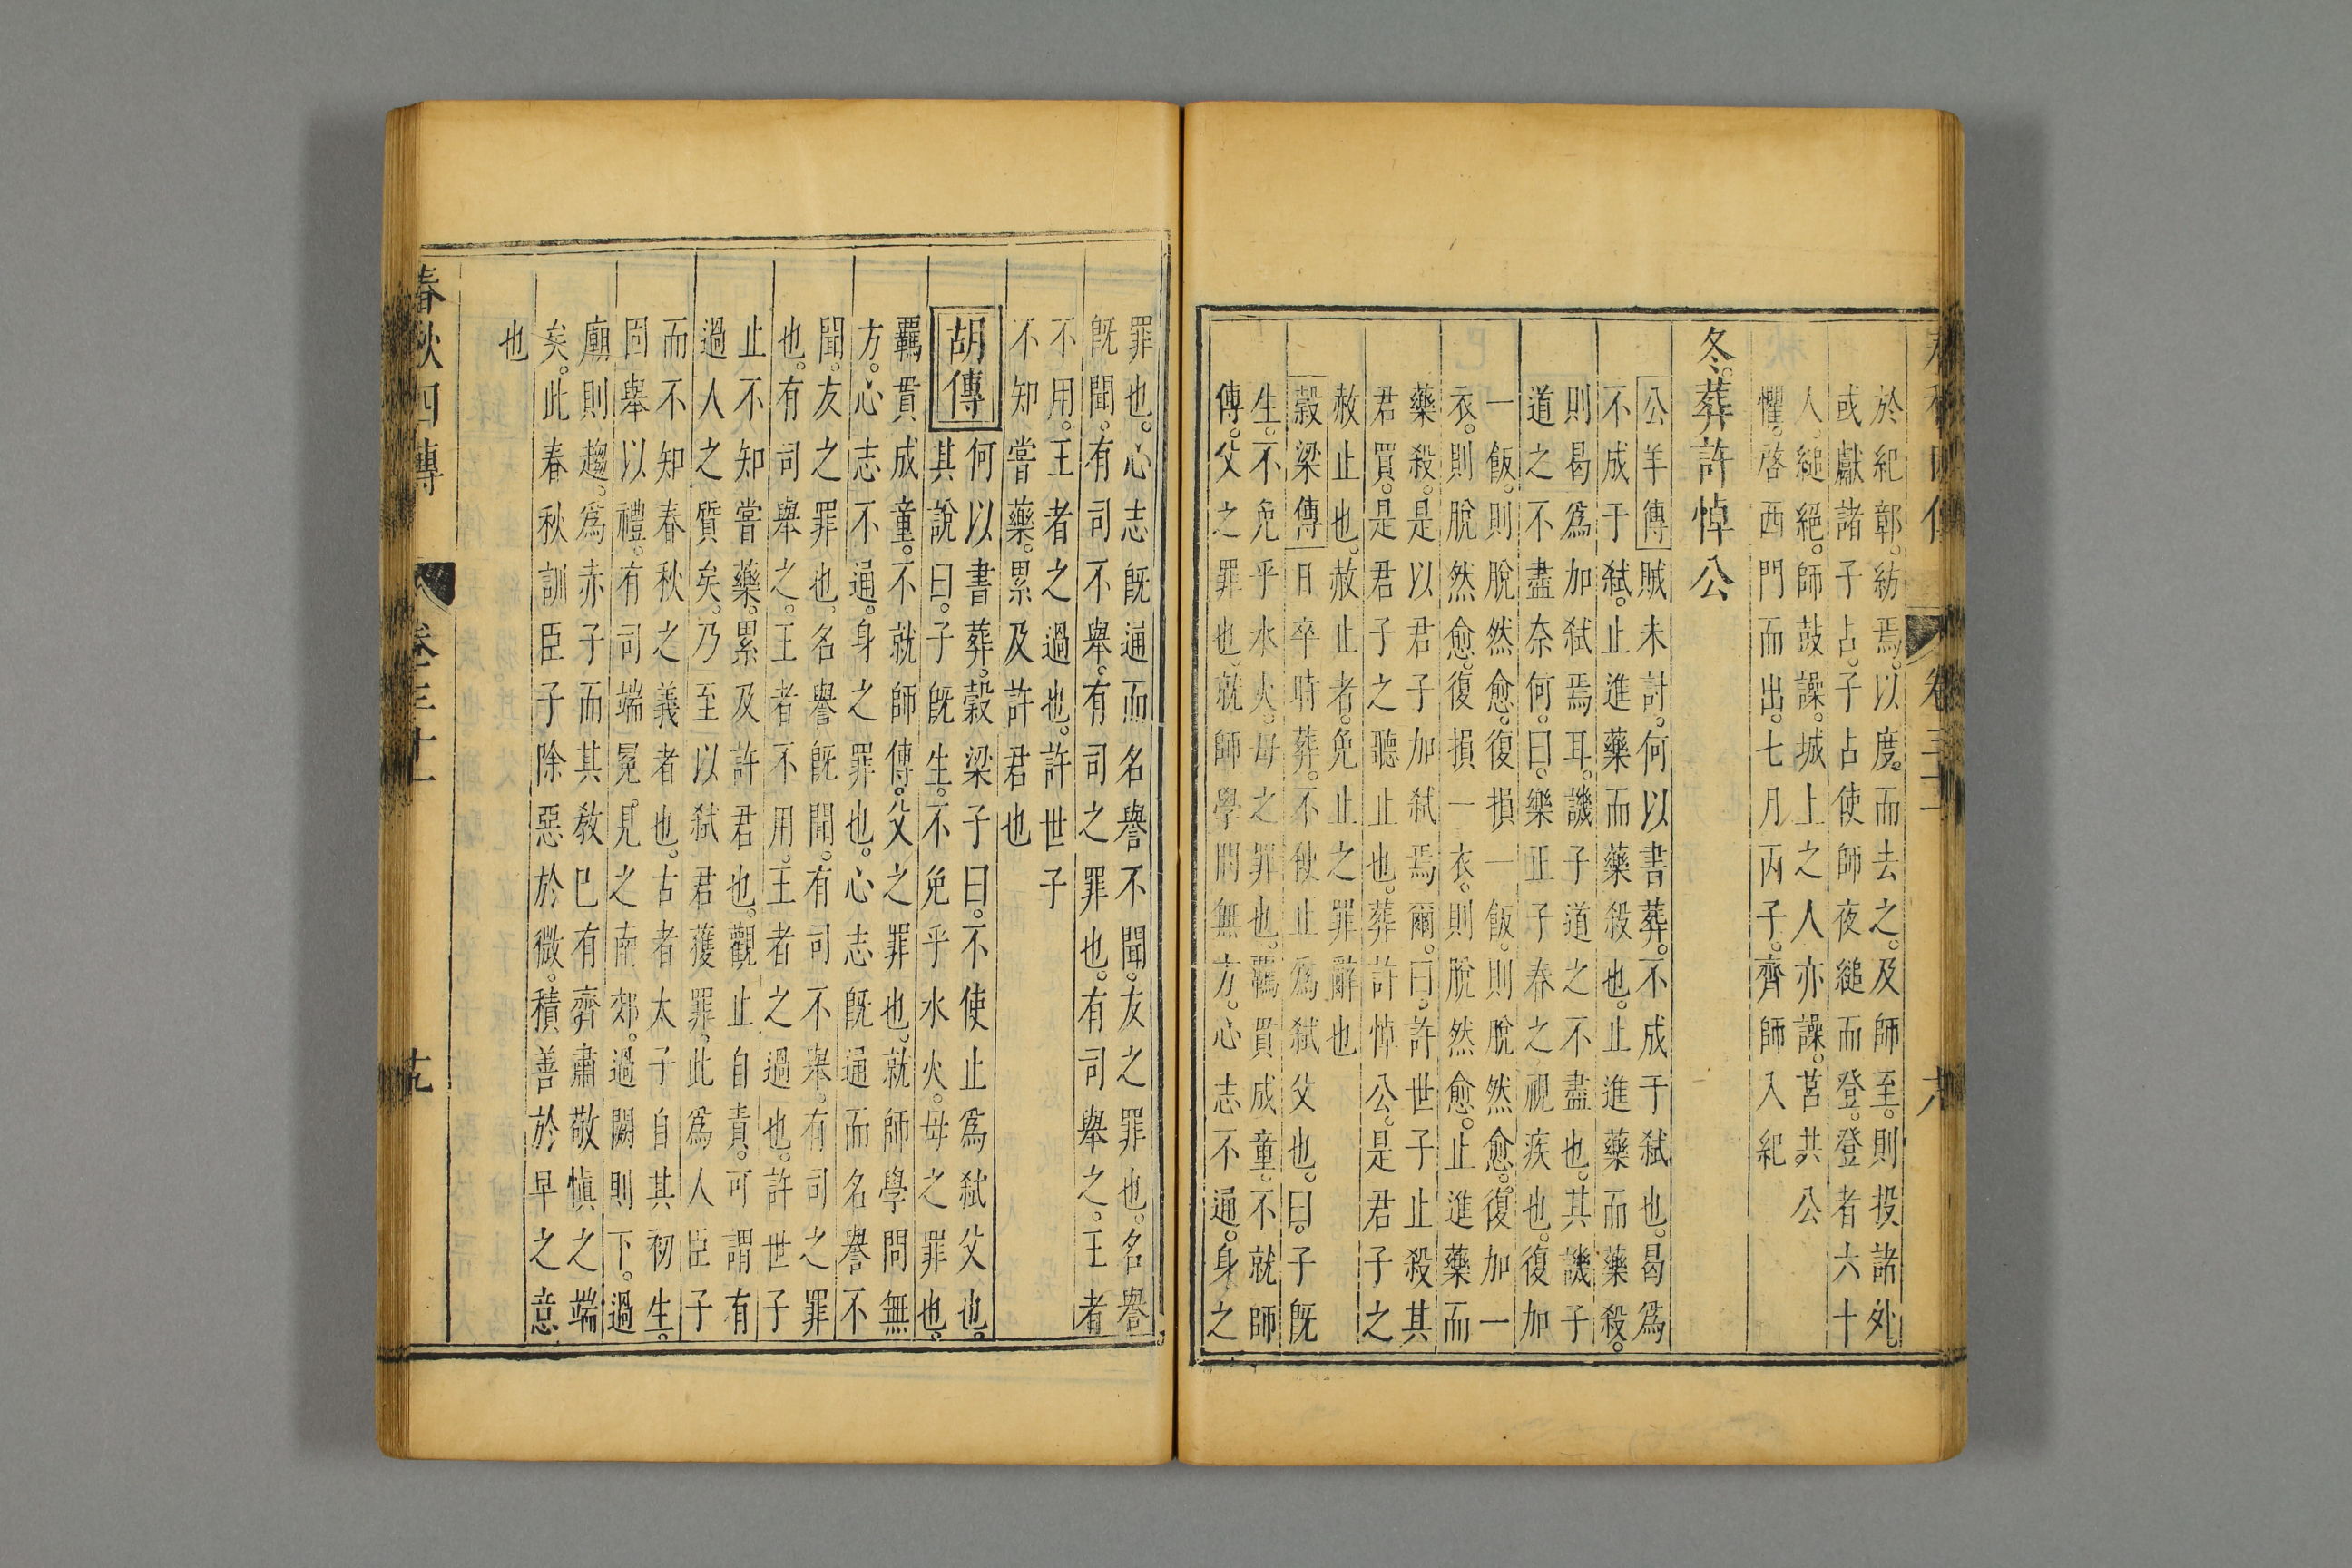 於紀鄣。紡焉。以度。而去之。及師至。則投諸外。
或獻諸子占。子占使師夜縋而登。登者六十
人。縋絕。師鼓譟。城上之人亦譟。莒共公
懼。啓西門而出。七月丙子。齊師入紀
冬。葬許悼公
公羊傳 賊未討。何以書葬。不成于弑也。曷爲
不成于弑。止進藥而藥殺也。止進藥而藥殺。
則曷爲加弑焉耳。譏子道之不盡也。其譏子
道之不盡奈何。曰。樂正子春之視疾也。復加
一飯。則脫然愈。復損一飯。則脫然愈。復加一
衣。則脫然愈。復損一衣。則脫然愈。止進藥而
藥殺。是以君子加弑焉爾。曰。許世子止殺其
君買。是君子之聽止也。葬許悼公。是君子之
赦止也。赦止者。免止之罪辭也
穀梁傳 日卒時葬。不使止爲弑父也。曰。子旣
生。不免乎水火。母之罪也。羈貫成童。不就師
傳。父之罪也。就師學問無方。心志不通。身之
罪也。心志旣通而名譽不聞。友之罪也。名譽
旣聞。有司不舉。有司之罪也。有司舉之。王者
不用。王者之過也。許世子
不知嘗藥。累及許君也
胡傳 何以書葬。穀梁子曰。不使止爲弑父也。
其說曰。子旣生。不免乎水火。母之罪也。
羈貫成童。不就師傳。父之罪也。就師學問無
方。心志不通。身之罪也。心志旣通而名譽不
聞。友之罪也。名譽旣聞。有司不舉。有司之罪
也。有司舉之。王者不用。王者之過也。許世子
止不知嘗藥。累及許君也。觀止自責。可謂有
過人之質矣。乃至以弑君獲罪。此爲人臣子
而不知春秋之義者也。古者太子自其初生。
固舉以禮。有司端冕。見之南郊。過闕則下。過
廟則趨。爲赤子而其敎已有齊肅敬愼之端
矣。此春秋訓臣子除惡於微。積善於早之意
也
春秋四傳 卷三十一